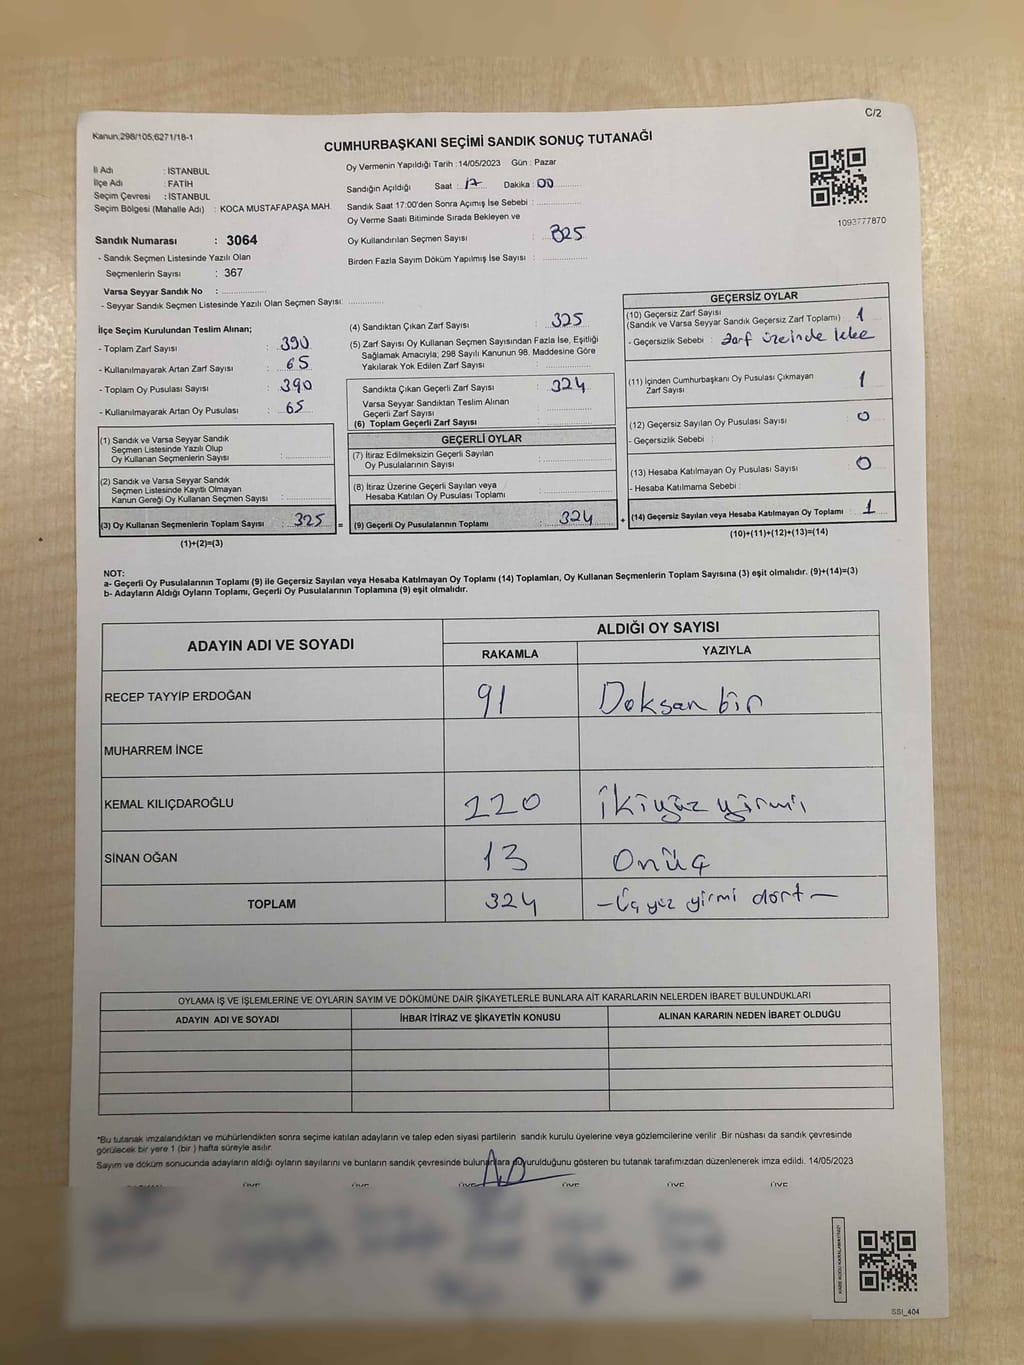 C/2
Kanun,298/105,6271/18-1
CUMHURBAŞKANI SEÇİMİ SANDIK SONUÇ TUTANAĞI
İl Adı : İSTANBUL
İlçe Adı : FATİH
Seçim Çevresi : İSTANBUL
Seçim Bölgesi (Mahalle Adı) : KOCA MUSTAFAPAŞA MAH.
Sandık Numarası : 3064
- Sandık Seçmen Listesinde Yazılı Olan
Seçmenlerin Sayısı : 367
Varsa Seyyar Sandık No : ................
- Seyyar Sandık Seçmen Listesinde Yazılı Olan Seçmen Sayısı: ............
Oy Vermenin Yapıldığı Tarih :14/05/2023 Gün : Pazar
Sandığın Açıldığı Saat : 17 Dakika : 00
Sandık Saat 17:00'den Sonra Açımış İse Sebebi : ............
Oy Verme Saati Bitiminde Sırada Bekleyen ve
Oy Kullandırılan Seçmen Sayısı : 325
Birden Fazla Sayım Döküm Yapılmış İse Sayısı : ............
1093777870
İlçe Seçim Kurulundan Teslim Alınan;
- Toplam Zarf Sayısı : 390
- Kullanılmayarak Artan Zarf Sayısı : 65
- Toplam Oy Pusulası Sayısı : 390
- Kullanılmayarak Artan Oy Pusulası : 65
(1) Sandık ve Varsa Seyyar Sandık
Seçmen Listesinde Yazılı Olup
Oy Kullanan Seçmenlerin Sayısı : ............
(2) Sandık ve Varsa Seyyar Sandık
Seçmen Listesinde Kayıtlı Olmayan
Kanun Gereği Oy Kullanan Seçmen Sayısı : ............
(3) Oy Kullanan Seçmenlerin Toplam Sayısı : 325 =
(1)+(2)=(3)
(4) Sandıktan Çıkan Zarf Sayısı : 325
(5) Zarf Sayısı Oy Kullanan Seçmen Sayısından Fazla İse, Eşitliği
Sağlamak Amacıyla; 298 Sayılı Kanunun 98. Maddesine Göre
Yakılarak Yok Edilen Zarf Sayısı : ............
Sandıkta Çıkan Geçerli Zarf Sayısı : 324
Varsa Seyyar Sandıktan Teslim Alınan
Geçerli Zarf Sayısı : ............
(6) Toplam Geçerli Zarf Sayısı : ............
GEÇERLİ OYLAR
(7) İtiraz Edilmeksizin Geçerli Sayılan
Oy Pusulalarının Sayısı : ............
(8) İtiraz Üzerine Geçerli Sayılan veya
Hesaba Katılan Oy Pusulası Toplamı : ............
(9) Geçerli Oy Pusulalarının Toplamı : 324 +
GEÇERSİZ OYLAR
(10) Geçersiz Zarf Sayısı : 1
(Sandık ve Varsa Seyyar Sandık Geçersiz Zarf Toplamı)
- Geçersizlik Sebebi : Zarf üzeinde leke
(11) İçinden Cumhurbaşkanı Oy Pusulası Çıkmayan
Zarf Sayısı : 1
(12) Geçersiz Sayılan Oy Pusulası Sayısı : 0
- Geçersizlik Sebebi :
(13) Hesaba Katılmayan Oy Pusulası Sayısı : 0
- Hesaba Katılmama Sebebi :
(14) Geçersiz Sayılan veya Hesaba Katılmayan Oy Toplamı : 1
(10)+(11)+(12)+(13)=(14)
NOT:
a- Geçerli Oy Pusulalarının Toplamı (9) ile Geçersiz Sayılan veya Hesaba Katılmayan Oy Toplamı (14) Toplamları, Oy Kullanan Seçmenlerin Toplam Sayısına (3) eşit olmalıdır. (9)+(14)=(3)
b- Adayların Aldığı Oyların Toplamı, Geçerli Oy Pusulalarının Toplamına (9) eşit olmalıdır.
ADAYIN ADI VE SOYADI
ALDIĞI OY SAYISI
RAKAMLA YAZIYLA
RECEP TAYYİP ERDOĞAN 91 Doksan bir
MUHARREM İNCE
KEMAL KILIÇDAROĞLU 220 İkiyüz yirmi
SİNAN OĞAN 13 Onüç
TOPLAM 324 - Üç yüz yirmi dört -
OYLAMA İŞ VE İŞLEMLERİNE VE OYLARIN SAYIM VE DÖKÜMÜNE DAİR ŞİKAYETLERLE BUNLARA AİT KARARLARIN NELERDEN İBARET BULUNDUKLARI
ADAYIN ADI VE SOYADI İHBAR İTİRAZ VE ŞİKAYETİN KONUSU ALINAN KARARIN NEDEN İBARET OLDUĞU
*Bu tutanak imzalandıktan ve mühürlendikten sonra seçime katılan adayların ve talep eden siyasi partilerin sandık kurulu üyelerine veya gözlemcilerine verilir .Bir nüshası da sandık çevresinde
görülecek bir yere 1 (bir ) hafta süreyle asılır.
Sayım ve döküm sonucunda adayların aldığı oyların sayılarını ve bunların sandık çevresinde bulunanlara duyurulduğunu gösteren bu tutanak tarafımızdan düzenlenerek imza edildi. 14/05/2023
ÜYE ÜYE ÜYE ÜYE ÜYE ÜYE
SSI_404